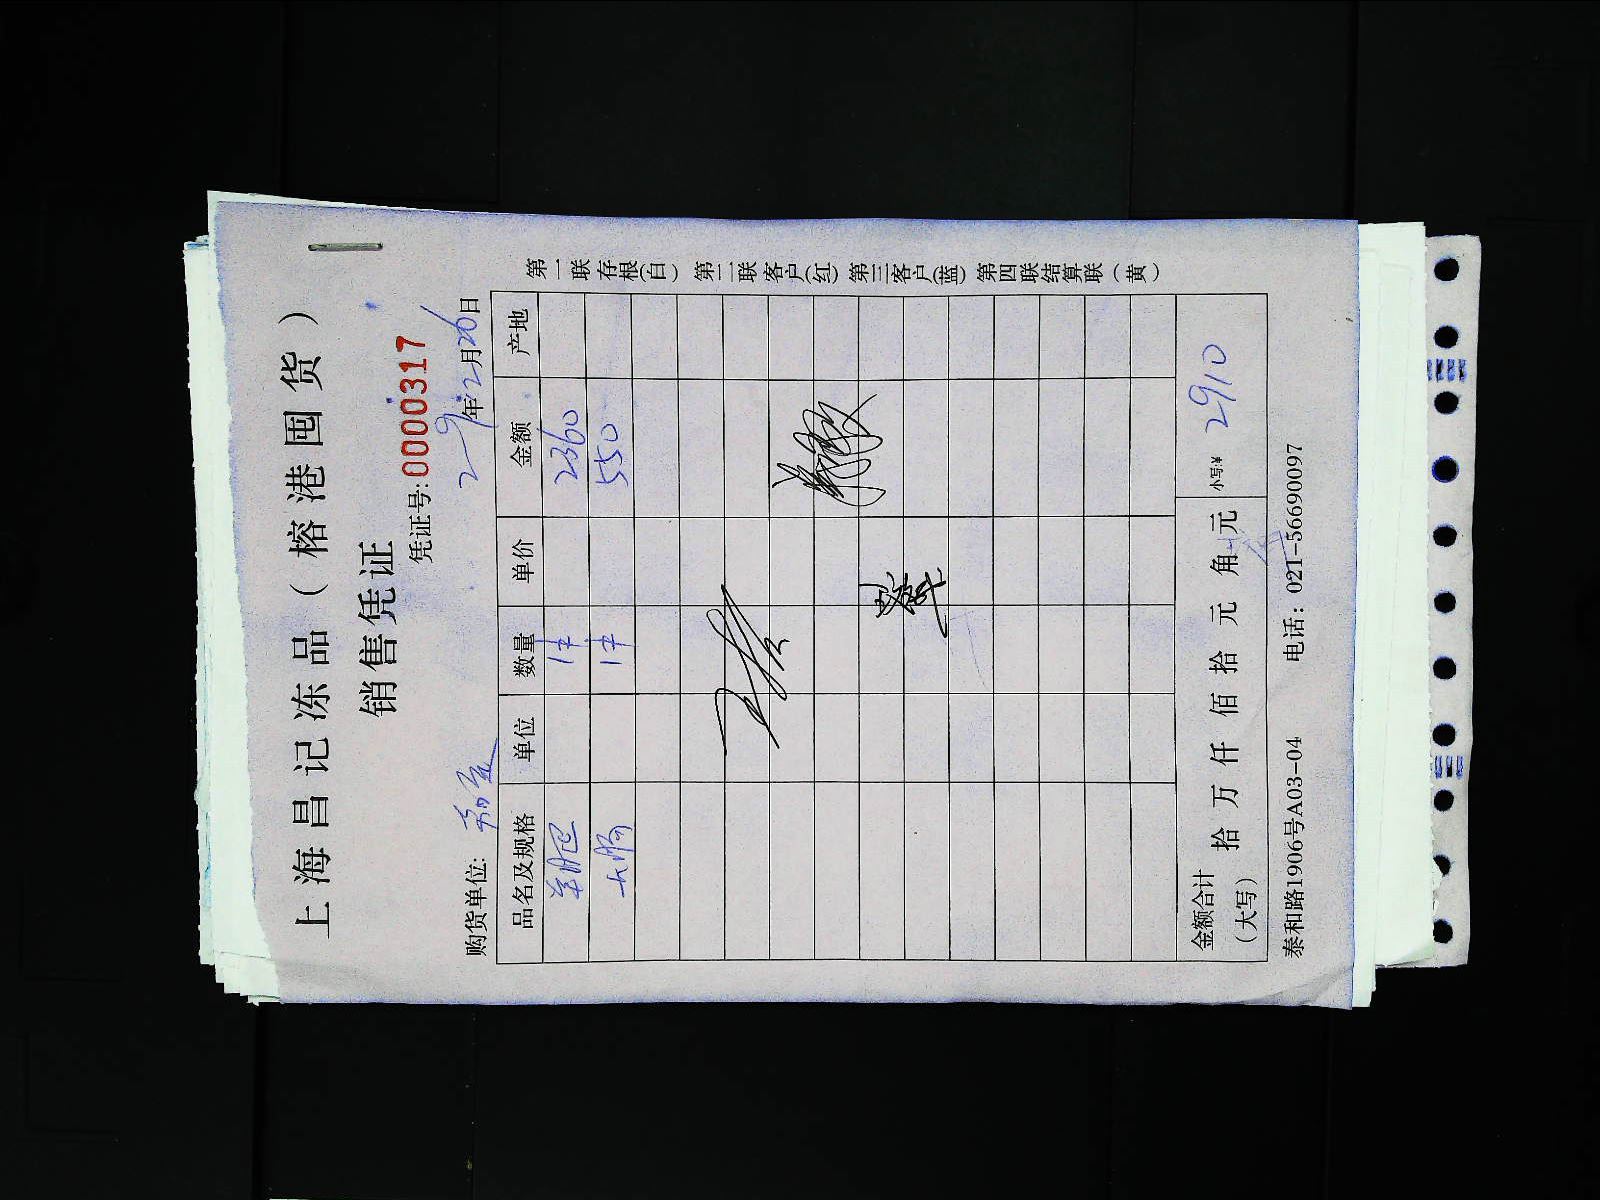 上海昌记冻品（榕港囤货）
销售凭证
凭证号: 0000317
年12月26日
购货单位:
品名及规格 单位 数量 单价 金额 产地
1件 2360
1件 550
金额合计（大写） 拾 万 仟 佰 拾 元 角 元 小写:¥ 2910
泰和路1906号A03-04 电话：021-56690097
第一联 存根(白) 第二联 客户(红) 第三客户(蓝) 第四联结算联（黄）